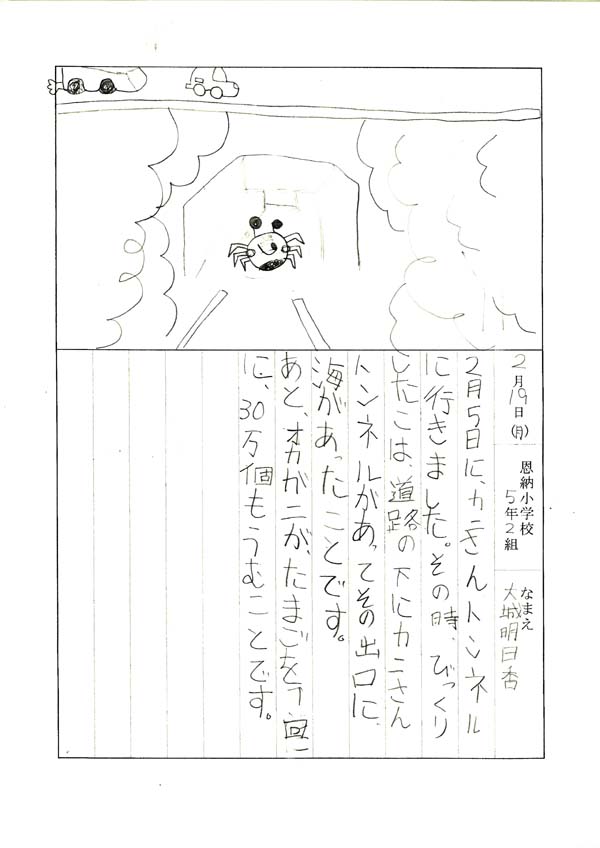 2月19日(月) 恩納小学校 5年2組 なまえ 大城明日香
2月5日に、カニさんトンネル
に行きました。その時、びっくり
したこは、道路の下にカニさん
トンネルがあってその出口に、
海があったことです。
あと、オカガニが、たまごを1回
に、30万個もうむことです。